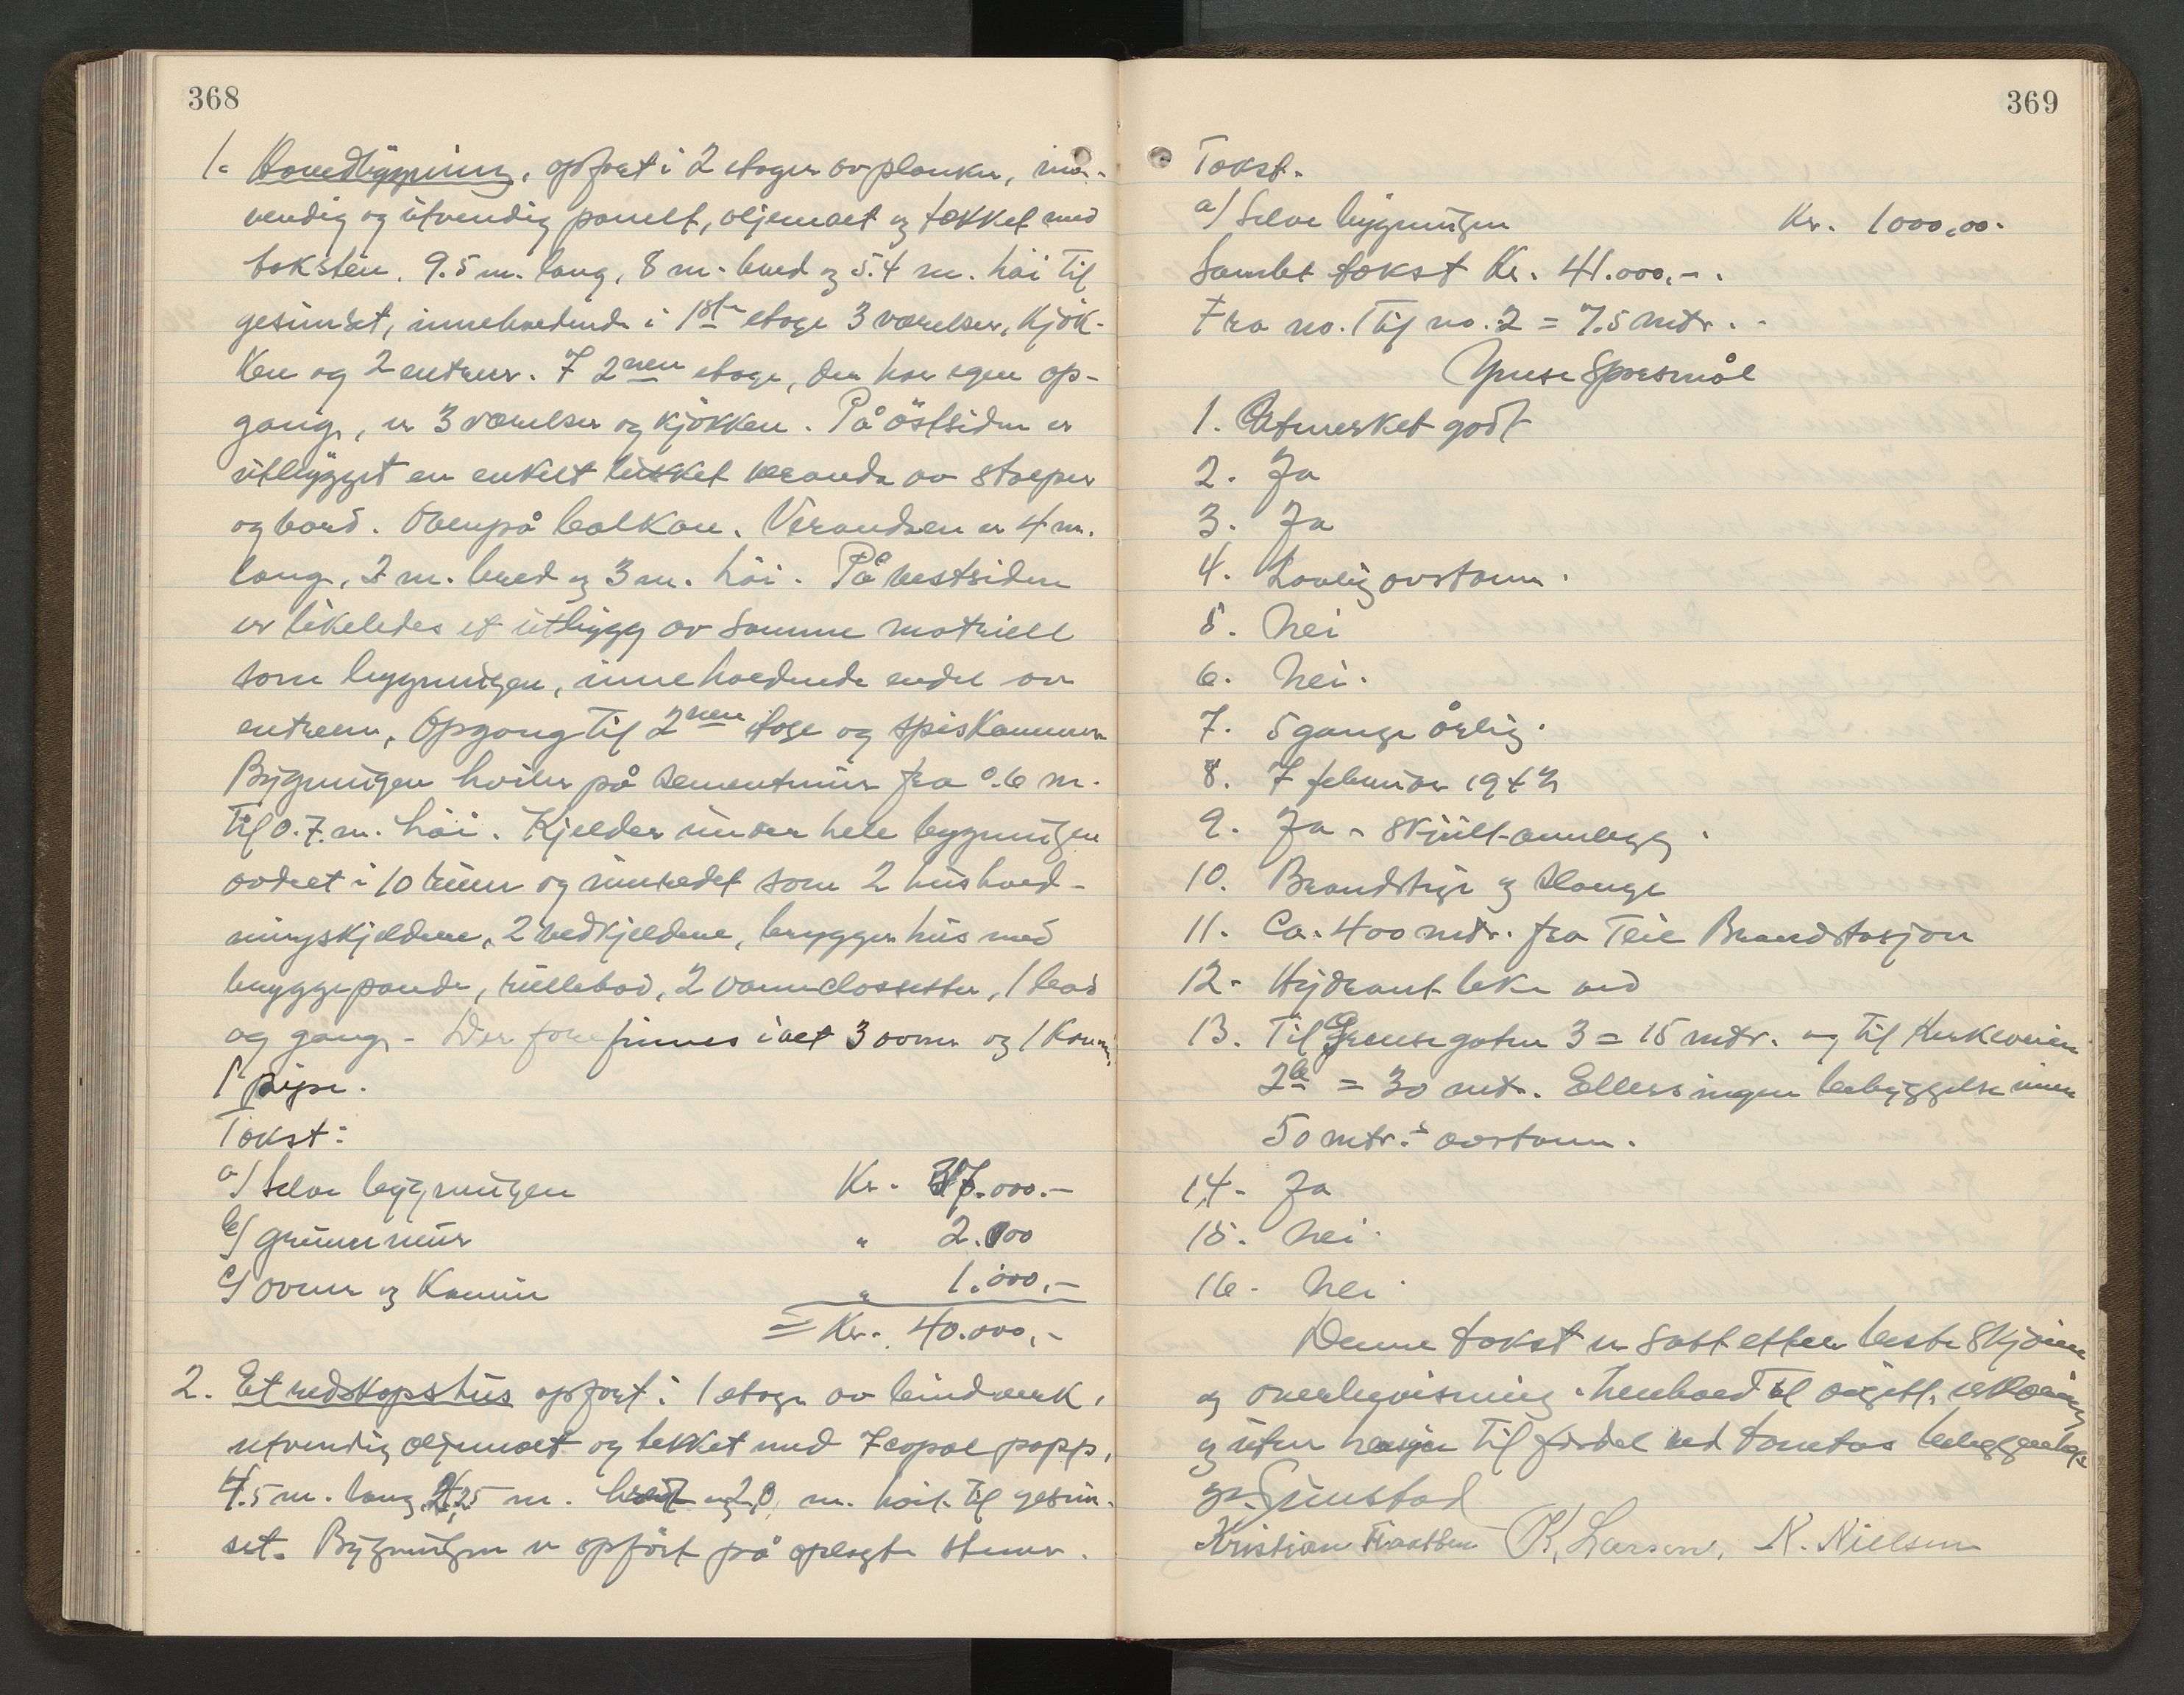 368
1. Hovedbygning, opført i 2 etager av planker, inn-
vendig og utvendig panelt, oljemalt og tækket med
taksten. 9.5 m. lang, 8 m. bred og 5.4 m. höi til
gesimset, inneholdende i 1ste etage 3 værelser, kjök-
ken og 2 entreer. I 2nen etage, der har egen op-
gang, er 3 værelser og kjökken. På östsiden er
utbygget en enkelt lukket veranda av stolper
og bord. Ovenpå balkon. Verandaen er 4 m.
lang, 2 m. bred og 3 m. höi. På vestsiden
er likeledes et utbygg av samme matriell
som bygningen, inneholdende endel av
entreen, opgang til 2nen etage og spiskammer
Bygningen hviler på sementmur fra 0.6 m.
til 0.7. m. höi. Kjelder under hele bygningen
avdelt i 10 rum og innredet som 2 hushold-
ningskjeldere, 2 vedkjeldere, bryggerhus med
bryggepande, rullebod, 2 vannclossetter, 1 bad
og gang. - Der forefinnes i alt 3 ovner og 1 kamin,
1 pipe.
Takst:
a/ Selve bygningen Kr. 37.000.-
b/ Grunnmur " 2.000
c/ ovner og Kamin " 1.000.-
= Kr. 40.000,-
2. Et redskapshus opført i 1 etage av bindverk,
utvendig oljemalt og tekket med Icopal papp,
4.5 m. lang, 2,25 m. bredt og 2,0 m. höit til gesim-
set. Bygningen er opfört på oplagte stener.
369
Takst.
a/ Selve bygningen Kr. 1000,00.
Samlet takst Kr. 41.000,-.
Fra no. 1 til no. 2 = 7.5 mtr..
Ymse Spørsmål
1. Utmerket godt
2. Ja
3. Ja
4. Lovlig avstann.
5. Nei
6. Nei.
7. 5 gange årlig.
8. 7 februar 1942
9. Ja - skjult-annlegg.
10. Brandstige og slange
11. Ca. 400 mtr. fra Teie Brandstasjon
12. Hydrant like ved
13. Til Grensegaten 3 = 15 mtr. og til Kirkeveien
2b = 30 mtr. Ellers ingen bebyggelse innen
50 mtr.s avstann.
14. Ja
15. Nei.
16. Nei.
Denne takst er satt etter beste skjönn
og overbevisning i henhold til avgitt erklæring
og uten hensyn til fordel ved tomtas beliggenhet
Kristian Traaseth K. Larsen, N. Nielsen